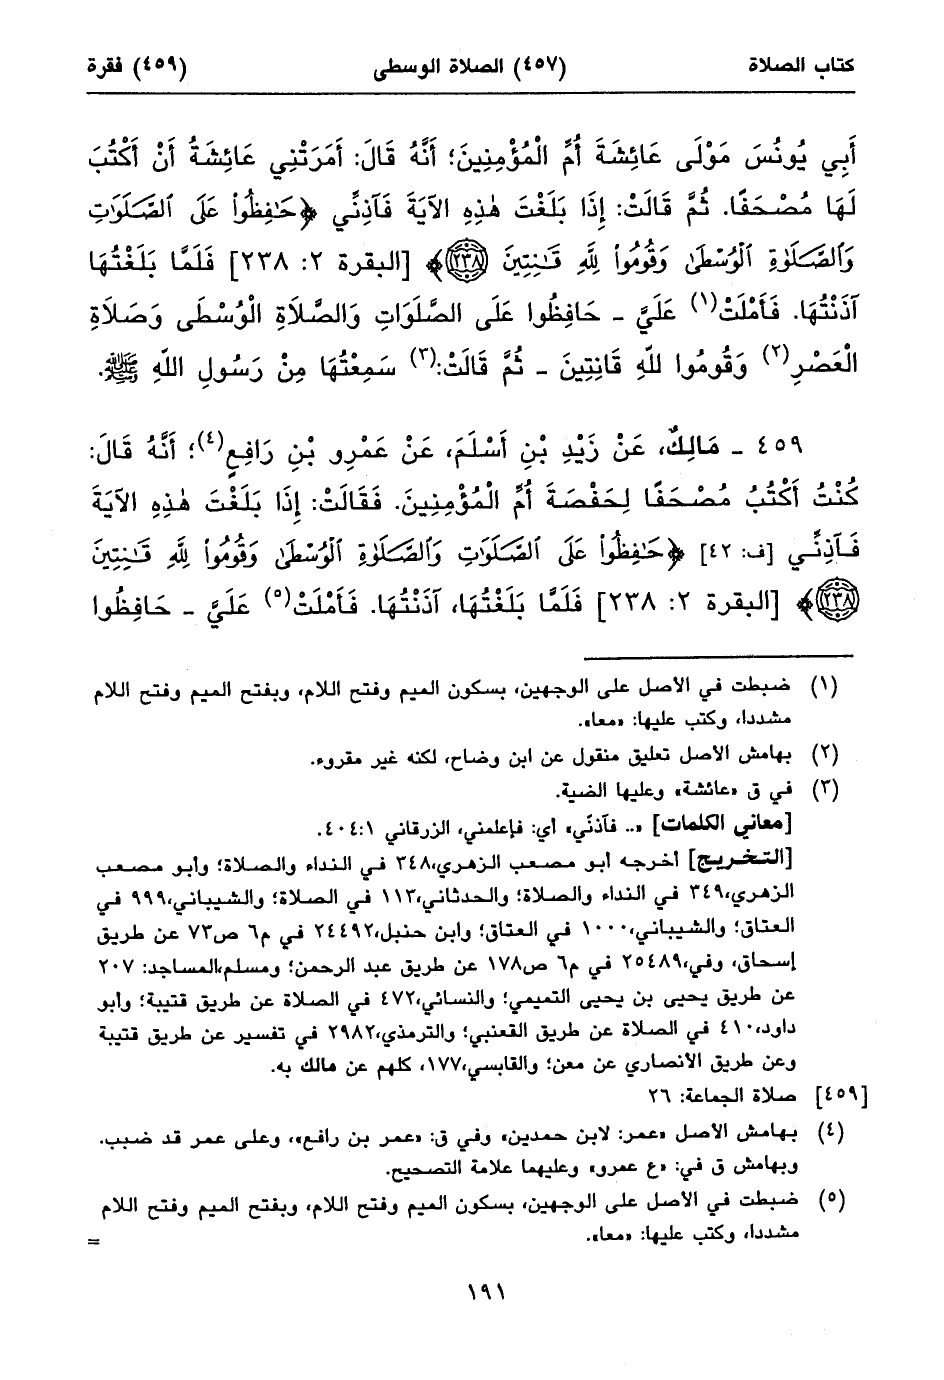 كتاب الصلاة (٤٥٧) الصلاة الوسطى (٤٥٩) فقرة
أَبِي يُونُسَ مَوْلَى عَائِشَةَ أُمِّ الْمُؤْمِنِينَ؛ أَنَّهُ قَالَ: أَمَرَتْنِي عَائِشَةُ أَنْ أَكْتُبَ
لَهَا مُصْحَفًا. ثُمَّ قَالَتْ: إِذَا بَلَغْتَ هٰذِهِ الآيَةَ فَآذِنِّي ﴿حَٰفِظُوا۟ عَلَى ٱلصَّلَوَٰتِ
وَٱلصَّلَوٰةِ ٱلْوُسْطَىٰ وَقُومُوا۟ لِلَّهِ قَٰنِتِينَ ۝٢٣٨﴾ [البقرة ٢: ٢٣٨] فَلَمَّا بَلَغْتُهَا
آذَنْتُهَا. فَأَمْلَتْ(١) عَلَيَّ - حَافِظُوا عَلَى الصَّلَوَاتِ وَالصَّلَاةِ الْوُسْطَى وَصَلَاةِ
الْعَصْرِ(٢) وَقُومُوا للهِ قَانِتِينَ - ثُمَّ قَالَتْ:(٣) سَمِعْتُهَا مِنْ رَسُولِ اللهِ ﷺ.
٤٥٩ - مَالِكٌ، عَنْ زَيْدِ بْنِ أَسْلَمَ، عَنْ عَمْرِو بْنِ رَافِعٍ(٤)؛ أَنَّهُ قَالَ:
كُنْتُ أَكْتُبُ مُصْحَفًا لِحَفْصَةَ أُمِّ الْمُؤْمِنِينَ. فَقَالَتْ: إِذَا بَلَغْتَ هٰذِهِ الآيَةَ
فَآذِنِّي [ف: ٤٢] ﴿حَٰفِظُوا۟ عَلَى ٱلصَّلَوَٰتِ وَٱلصَّلَوٰةِ ٱلْوُسْطَىٰ وَقُومُوا۟ لِلَّهِ قَٰنِتِينَ
۝٢٣٨﴾ [البقرة ٢: ٢٣٨] فَلَمَّا بَلَغْتُهَا، آذَنْتُهَا. فَأَمْلَتْ(٥) عَلَيَّ - حَافِظُوا
(١) ضبطت في الأصل على الوجهين، بسكون الميم وفتح اللام، وبفتح الميم وفتح اللام
مشددا، وكتب عليها: «معا».
(٢) بهامش الأصل تعليق منقول عن ابن وضاح، لكنه غير مقروء.
(٣) في ق «عائشة» وعليها الضبة.
[معاني الكلمات] «.. فآذنّي» أي: فإعلمني، الزرقاني ٤٠٤:١.
[التخريج] أخرجه أبو مصعب الزهري،٣٤٨ في النداء والصلاة؛ وأبو مصعب
الزهري،٣٤٩ في النداء والصلاة؛ والحدثاني،١١٣ في الصلاة؛ والشيباني،٩٩٩ في
العتاق؛ والشيباني،١٠٠٠ في العتاق؛ وابن حنبل،٢٤٤٩٢ في م٦ ص٧٣ عن طريق
إسحاق، وفي،٢٥٤٨٩ في م٦ ص١٧٨ عن طريق عبد الرحمن؛ ومسلم،المساجد: ٢٠٧
عن طريق يحيى بن يحيى التميمي؛ والنسائي،٤٧٢ في الصلاة عن طريق قتيبة؛ وأبو
داود،٤١٠ في الصلاة عن طريق القعنبي؛ والترمذي،٢٩٨٢ في تفسير عن طريق قتيبة
وعن طريق الأنصاري عن معن؛ والقابسي،١٧٧، كلهم عن مالك به.
[٤٥٩] صلاة الجماعة: ٢٦
(٤) بهامش الأصل «عمر: لابن حمدين» وفي ق: «عمر بن رافع»، وعلى عمر قد ضبب.
وبهامش ق في: «ع عمرو» وعليهما علامة التصحيح.
(٥) ضبطت في الأصل على الوجهين، بسكون الميم وفتح اللام، وبفتح الميم وفتح اللام
مشددا، وكتب عليها: «معا». =
١٩١